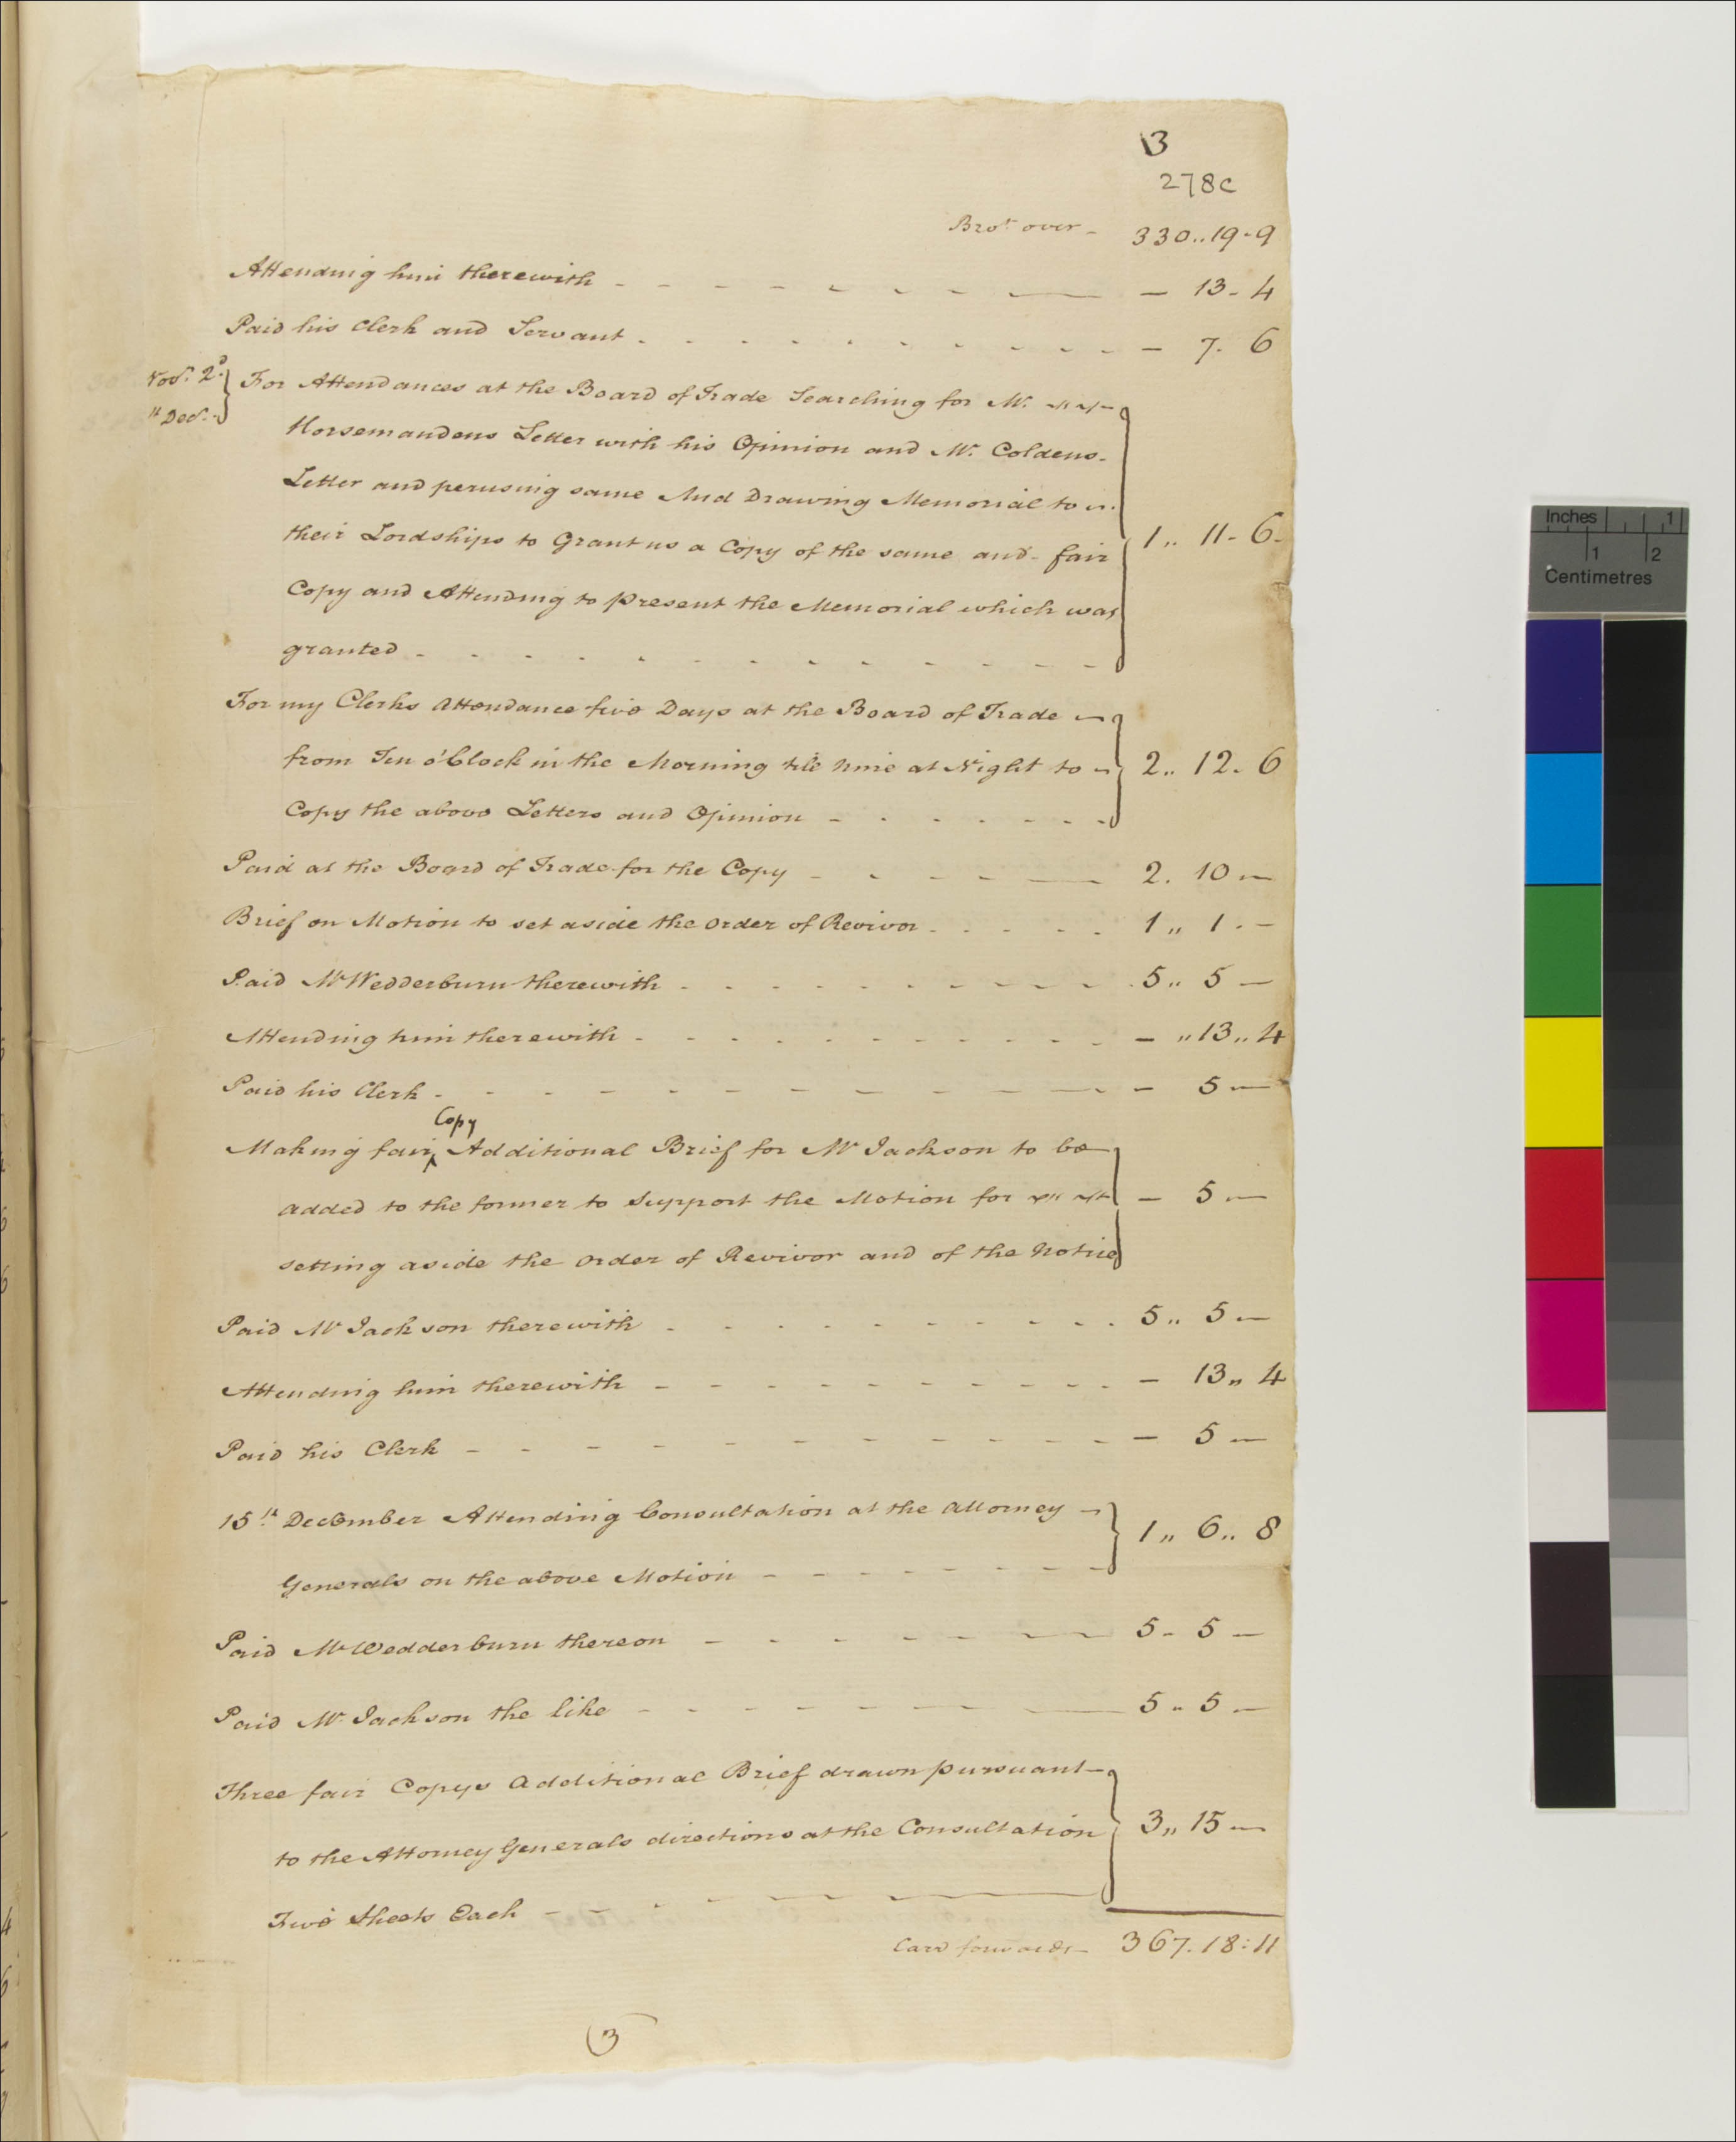 13
278c
Brot over - 330..19-9
Attending him therewith - 13-4
Paid his Clerk and Servant - 7. 6
Novr. 2d. For Attendances at the Board of Trade Searching for Mr.
Decr. Horsemandens Letter with his Opinion and Mr. Coldens-
Letter and perusing same And Drawing Memorial to
their Lordships to Grant us a Copy of the same and fair 1.. 11-6-
Copy and Attending to present the Memorial which was
granted
For my Clerks Attendance five Days at the Board of Trade
from Ten o'Clock in the Morning till Nine at Night to 2.. 12. 6
Copy the above Letters and Opinion
Paid at the Board of Trade for the Copy 2. 10 —
Brief on Motion to set aside the Order of Revivor 1 ,, 1 . -
Paid Mr Wedderburn therewith 5.. 5 —
Attending him therewith — ,,13,, 4
Paid his Clerk — 5 —
Copy
Making fair ^ Additional Brief for Mr Jackson to be
added to the former to Support the Motion for — 5 —
setting aside the Order of Revivor and of the Notice
Paid Mr Jackson therewith 5.. 5 —
Attending him therewith — 13,, 4
Paid his Clerk — 5 —
15th December Attending Consultation at the Attorney 1,, 6.. 8
Generals on the above Motion
Paid Mr Wedderburn thereon 5- 5 —
Paid Mr. Jackson the like 5.. 5 —
Three fair Copys Additional Brief drawn pursuant
to the Attorney Generals directions at the Consultation 3,, 15 —
Five Sheets Each
Card forwards - 367.18:11
(3
Inches 1
1 2
Centimetres